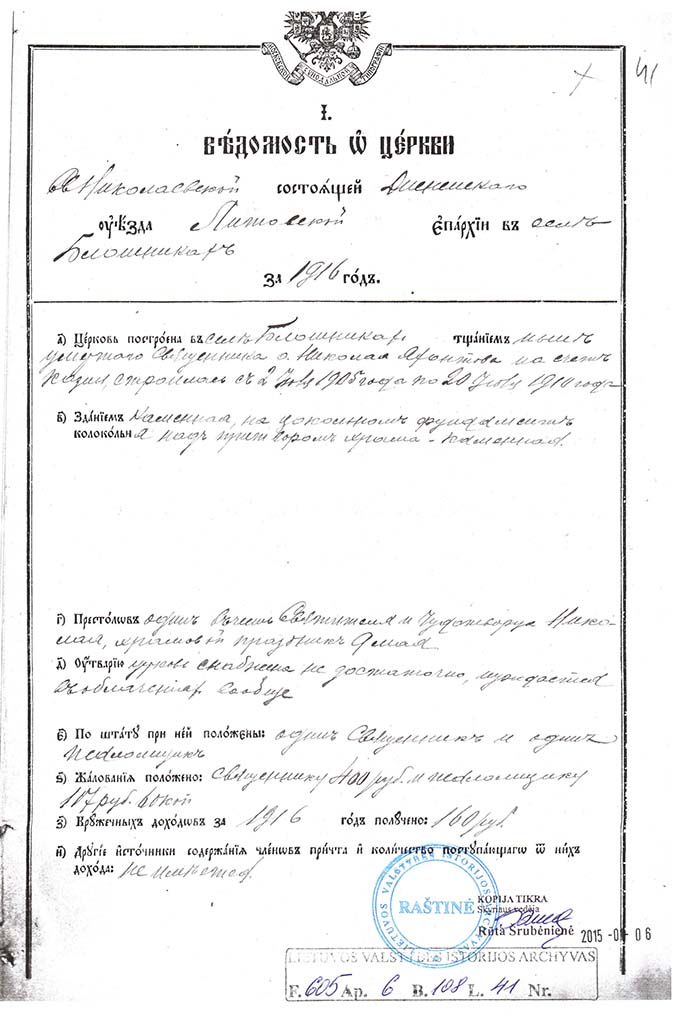 41
МОСКОВСКОЙ СѴНОДАЛЬНОЙ ТИПОГРАФІИ
І.
ВѢДОМОСТЬ Ѿ ЦЕ́РКВИ
Св Николаевской состоѧ́щей Дисненскаго
ᲂу҆ѣ́зда Литовской є҆па́рхїи въ селѣ
Блошникахъ
за 1916 го́дъ.
а҃) Це́рковь постро́ена въ селѣ Блошниках тща́нїемъ нынѣ
умершаго Священника о. Николая на счетъ
Казны, строилась съ 2 1905 года по 20 1910 года
в҃) Зда́нїемъ Каменная, на цокольномъ фундаментѣ
колоко́льнѧ надъ притворомъ храма - каменная.
г҃) Престо́лѡвъ одинъ въ честь Святителя и Чудотворца Нико-
лая, храмовой праздникъ 9 мая
д҃) Оу҆́тварїю церковь снабжена не достаточно, нуждается
въ облаченіях вообще
є҃) По шта́тꙋ при не́й поло́жены: одинъ Священникъ и одинъ
псаломщикъ
ѕ҃) Жа́лованїѧ поло́жено: Священнику 400 руб. и псаломщику
117 руб. 60 коп
з҃) Крꙋ́жечныхъ дохо́дѡвъ за 1916 го́дъ полꙋ́чено: 160 руб.
и҃) Дрꙋгі́е и҆сто́чники содержа́нїѧ чле́нѡвъ при́чта и҆ коли́чество постꙋпа́ющагѡ ѿ ни́хъ
дохо́да: не имѣется.
LIETUVOS VALSTYBĖS ISTORIJOS ARCHYVAS
RAŠTINĖ
KOPIJA TIKRA
Skyriaus vedėja
Rūta Šrubėnienė
2015 - 06
LIETUVOS VALSTYBĖS ISTORIJOS ARCHYVAS
F. 605 Ap. 6 B. 108 L. 41 Nr.